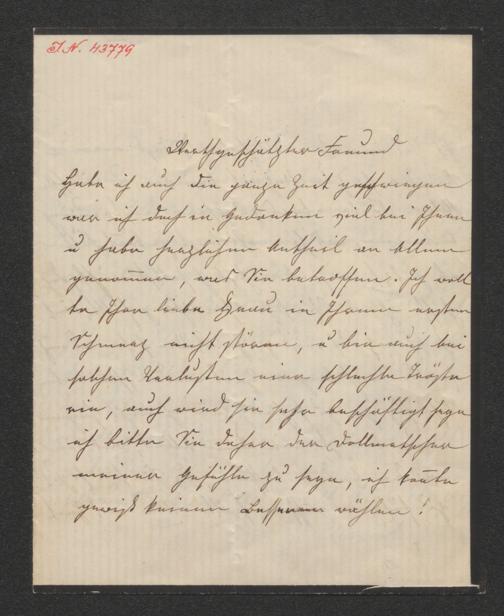 I.N. 43779
Werthgeschätzter Freund
Habe ich auch die ganze Zeit geschwiegen
war ich doch in Gedanken viel bei Ihnen
u habe herzlichen Antheil an Allem
genommen, was Sie betroffen. Ich woll
te Ihre liebe Frau in Ihrem ersten
Schmerz nicht stören, u bin auch bei
solchen Verlusten eine schlechte Tröste
rin, auch wird sie sehr beschäftigt seyn
ich bitte Sie daher der Dollmetscher
meiner Gefühle zu seyn, ich könte
gewiß keinen Besseren wählen!